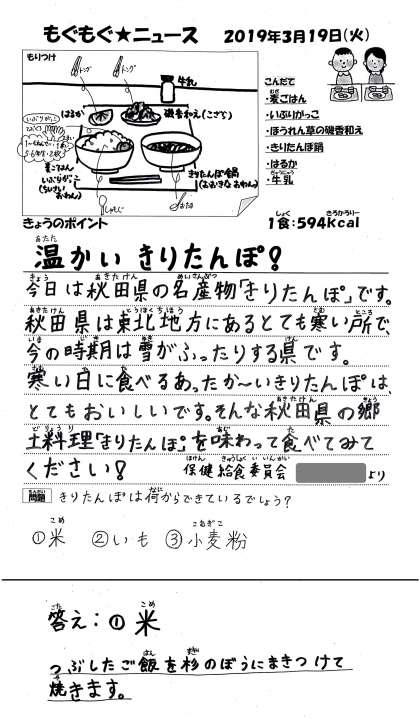 もぐもぐ★ニュース　2019年3月19日(火)
もりつけ
トング
トング
牛乳
はるか
磯香和え(こざら)
いぶりがっこ
麦ごはん
いぶりがっこ
(ちいさいおわん)
きりたんぽ鍋
(おおきなおわん)
しゃもじ
おたま
こんだて
・麦ごはん
・いぶりがっこ
・ほうれん草の磯香和え
・きりたんぽ鍋
・はるか
・牛乳
きょうのポイント
1食:594Kcal
温かい きりたんぽ!
今日は秋田県の名産物「きりたんぽ」です。
秋田県は東北地方にあるとても寒い所で、
今の時期は雪がふったりする県です。
寒い日に食べるあったか〜いきりたんぽは、
とてもおいしいです。そんな秋田県の郷
土料理「きりたんぽ」を味わって食べてみて
ください!
保健給食委員会
より
問題 きりたんぽは何からできているでしょう?
①米　②いも　③小麦粉
答え:① 米
つぶしたご飯を杉のぼうにまきつけて
焼きます。